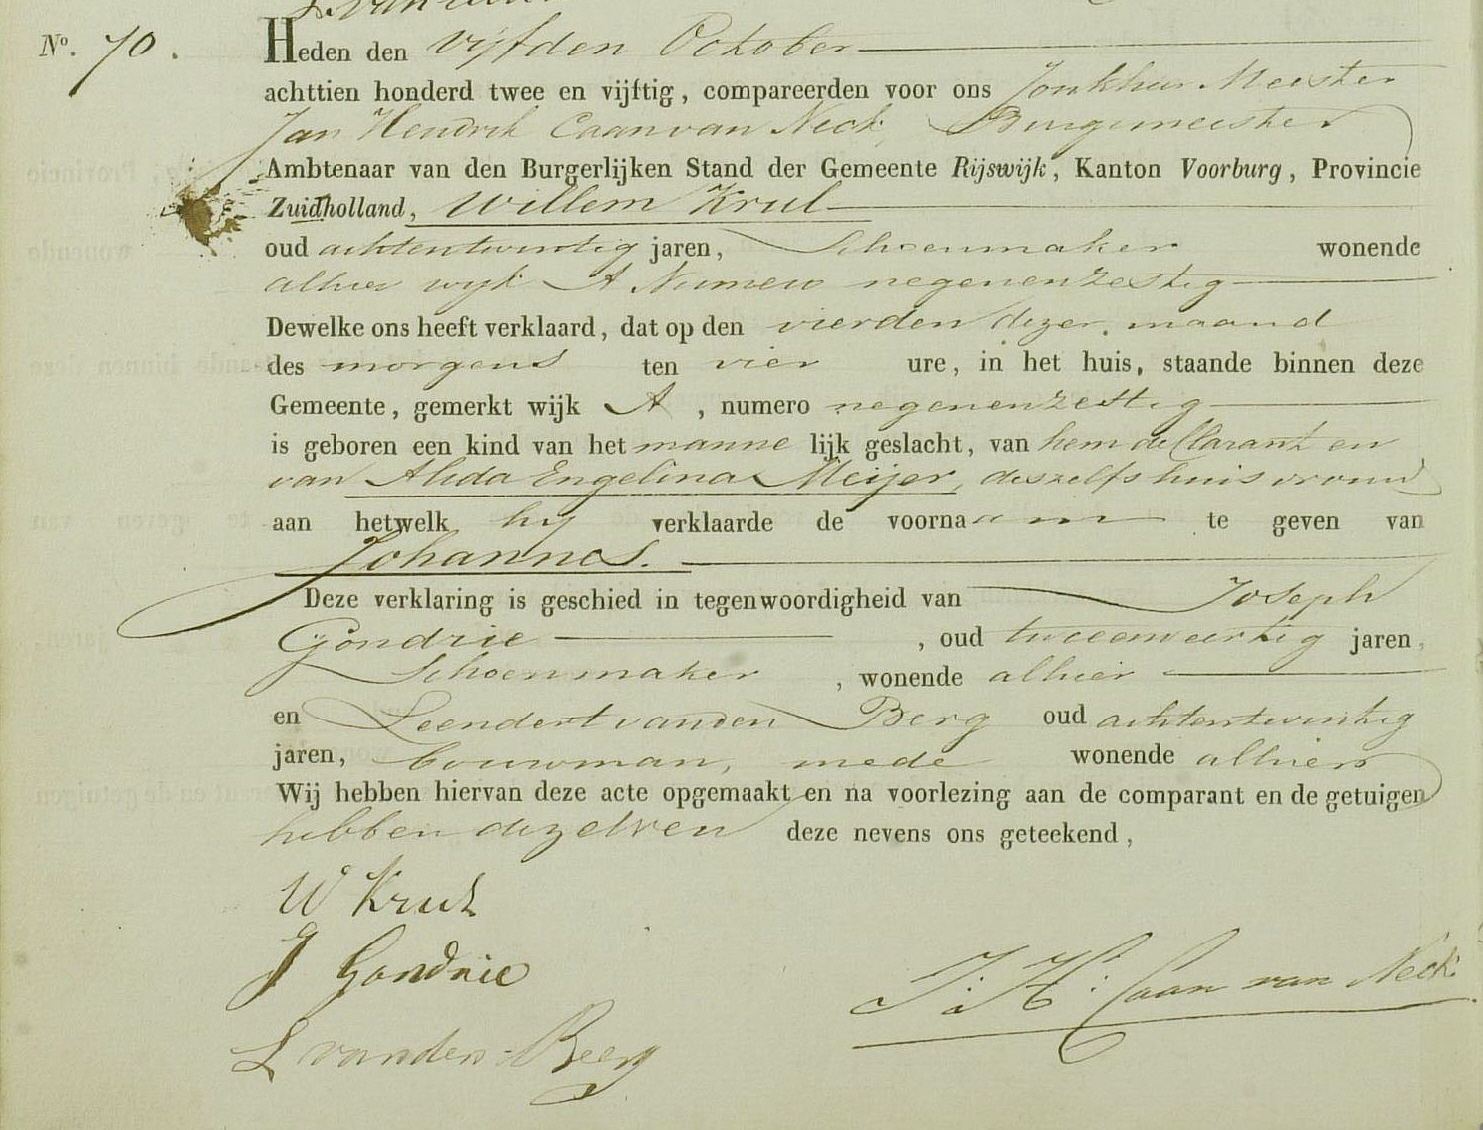 Nº. 70.
Heden den vijfden October
achttien honderd twee en vijftig, compareerden voor ons Jonkheer Meester
Jan Hendrik Caan van Neck, Burgemeester
Ambtenaar van den Burgerlijken Stand der Gemeente Rijswijk, Kanton Voorburg, Provincie
Zuidholland, Willem Krul
oud achtentwintig jaren, Schoenmaker wonende
alhier wijk A Numero negenenzestig
Dewelke ons heeft verklaard, dat op den vierden dezer maand
des morgens ten vier ure, in het huis, staande binnen deze
Gemeente, gemerkt wijk A, numero negenenzestig
is geboren een kind van het mannelijk geslacht, van hem declarant en
van Alida Engelina Meijer, deszelfs huisvrouw
aan hetwelk hij verklaarde de voornaam te geven van
Johannes.
Deze verklaring is geschied in tegenwoordigheid van Joseph
Gondrie, oud tweeenveertig jaren,
Schoenmaker, wonende alhier
en Leendert van den Berg oud achtentwintig
jaren, bouwman, mede wonende alhier
Wij hebben hiervan deze acte opgemaakt en na voorlezing aan de comparant en de getuigen
hebben dezelven deze nevens ons geteekend,
W Krul
J Gondrie
J: H: Caan van Neck
L van den Berg